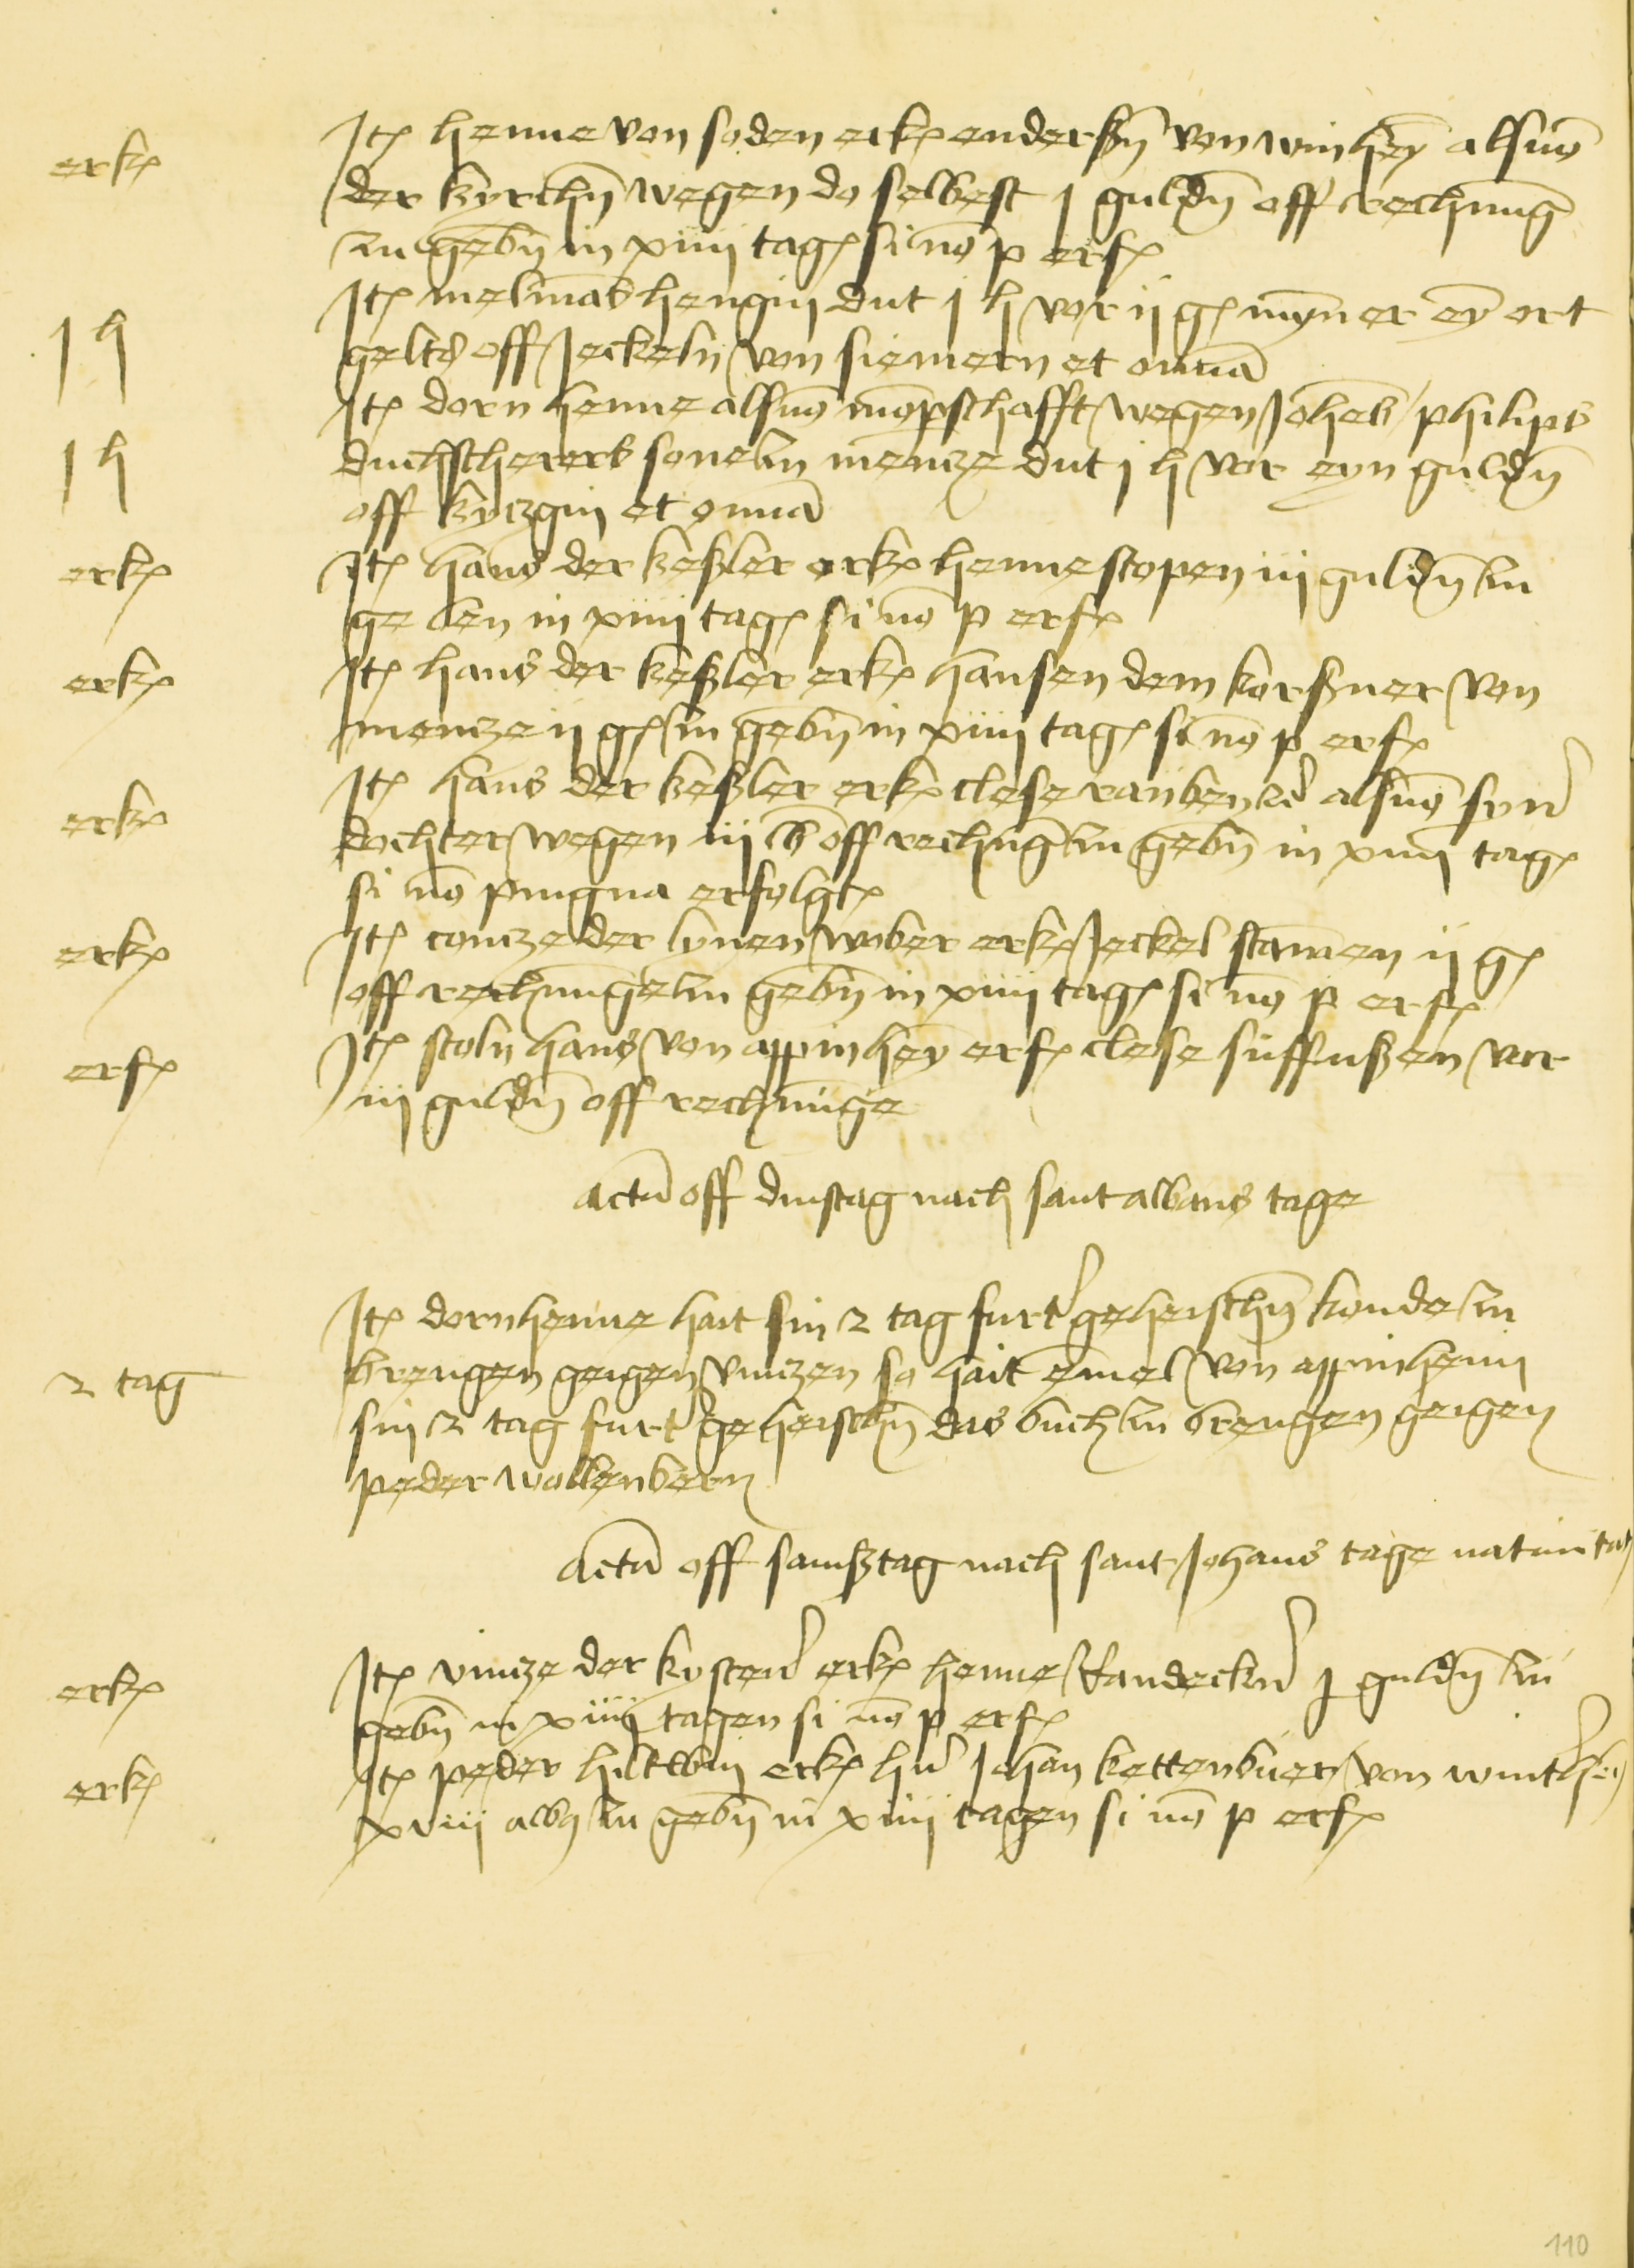 erk(
Jt( henne von soden erk( enderßin̄ von winhey̅ als vō
der kyrchin̄ wegen do selbest j guldin̄ off rechnūg
zu gebin̄ in xiiij tag( si nō p erf(
j h
Jt( melmans hengin dut j h vor ij g( myn̄er ey̅ ort
gelts off Jeckeln von siemern et om̄ia
j h
Jt( dorn henne als vō mōpschafft wegen Joh̄es philips
duchscherers sone zu mencze dut j h vor eyn guldin̄
off kyczgin et om̄ia
erk(
Jt( hans der keßler erk( henne stopen iij guldin̄ zu
geben in xiiij tag( si nō p erf(
erk(
Jt( hans der keßler erk( hansen dem korßner von
mencze ij g( zu gebin̄ in xiiij tag( si nō p erf(
erk(
Jt( hans der keßler erk( clese raubenz̕ als vō syn̕
dochter wegen iij lb off rechnūg zu gebin̄ in xiiij tag(
si nō pingna erfolgt(
erk(
Jt( concze der lynen wober erk( Jeckel stam̄en ij g(
off rechnūge zu gebin̄ in xiiij tag( si nō p erf(
erf(
Jt( stoln hans von appinhey̅ erf( clese suffußen vor
iij guldin̄ off rechnūge
Actū off dinstag nach sant albans tage
2 tag
Jt( dornhenne hait sin 2 tag furt̕ geheischin̄ konde zu
brengen geigen vinczen so hait emel von appinheim
sin 2 tag furt̕ geheischin̄ das buch zu brengen geigen
peder wollenbern
Actū off samßtag nach sant Johans tage natiuitat(
erk(
Jt( vincze der kysten̕ erk( henne randeckn̕ j guldin̄ zu
gebin̄ in xiiij tagen si nō p erf(
erk(
Jt( peder hiltwin erk( hn̕ Johan kettenbuer von wint̕hey̅
xviij alb( zu gebin̄ in xiiij tagen si nō p erf(
110